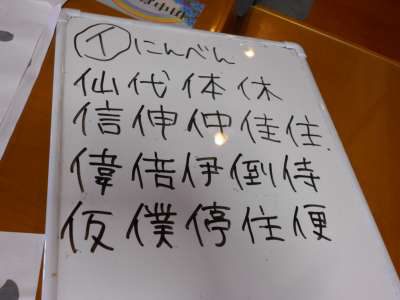 イ にんべん
仙 代 体 休
信 伸 仲 佳 住
偉 倍 伊 倒 侍
仮 僕 停 住 便